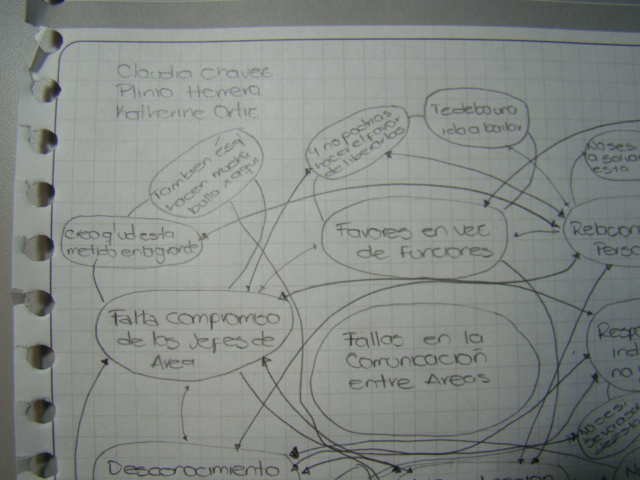 Claudia Chavec
Plinio Herrera
Katherine Ortic
Tambien
hacen mucha
bulla x aqui
Y no podrias
hacer el favor
de liberarlos
Te debo una
ida a bailar
No se si
esta
creo q' ud esta
metido en la grande
Favores en vec
de Funciones
Relacion
Perso
Falta Compromiso
de los Jefes de
Area
Fallas en la
Comunicacion
entre Areas
Respo
ind
no
No se si
Desconocimiento